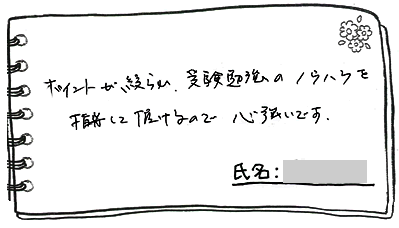 ポイントが絞られ、受験勉強のノウハウを
指導して頂けるので心強いです。
氏名: